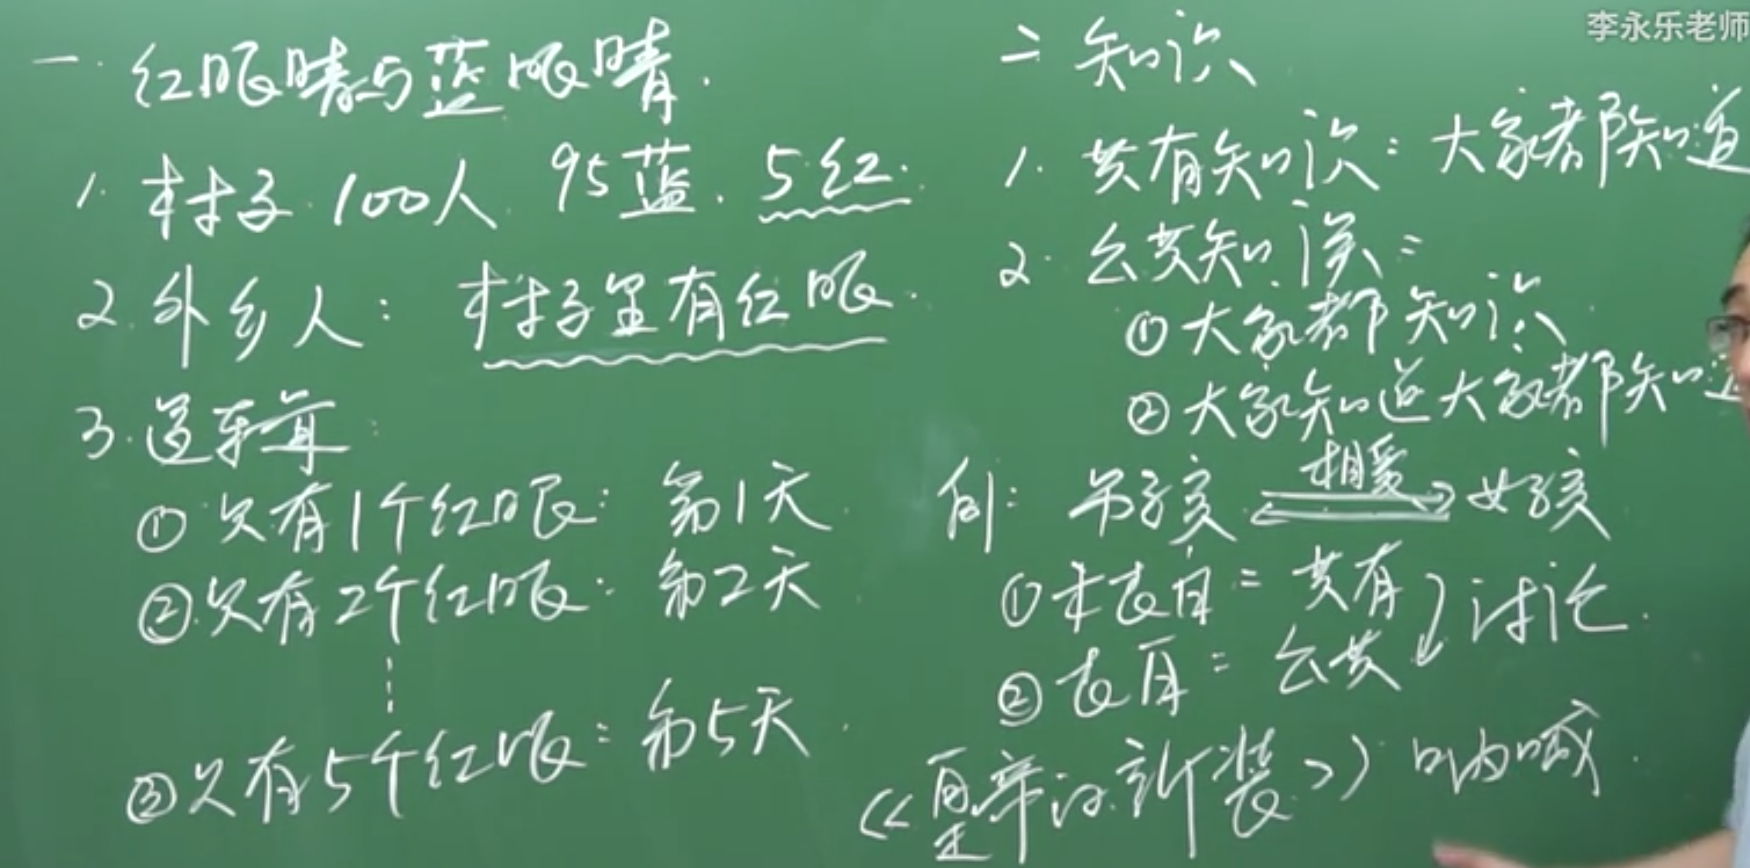 李永乐老师
一. 红眼睛与蓝眼睛.
1. 村子 100人 95蓝. 5红.
2. 外乡人: 村子里有红眼.
3. 逻辑:
① 只有1个红眼: 第1天
② 只有2个红眼: 第2天
⋮
③ 只有5个红眼: 第5天
二 知识
1. 共有知识: 大家都知道
2. 公共知识:
① 大家都知识
② 大家知道大家都知道
例: 男孩 相爱 女孩
① 未表白: 共有
② 表白: 公共
讨论.
《皇帝的新装》 呐喊.